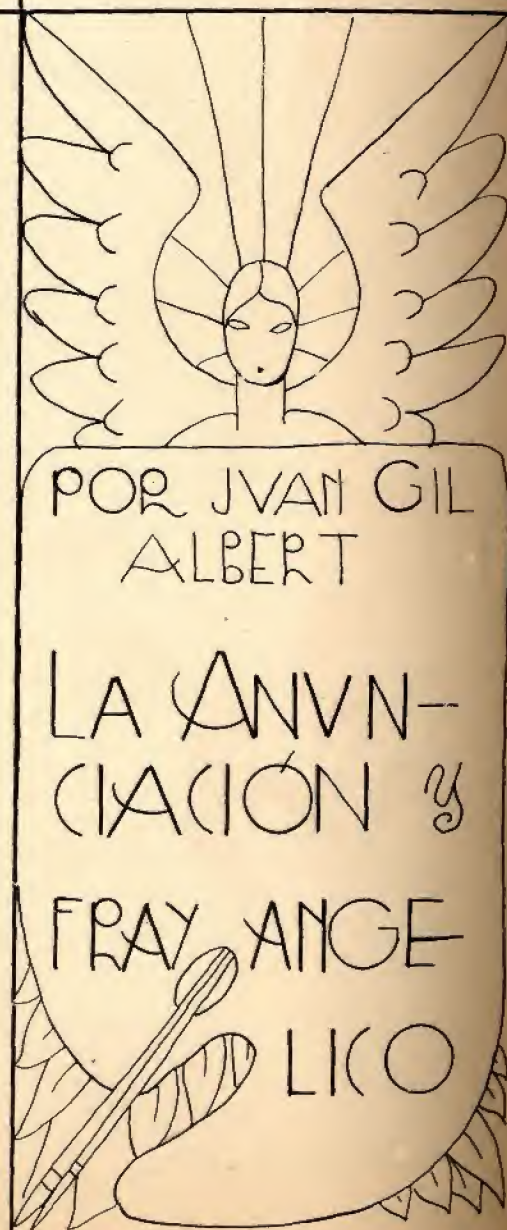 POR JVAN GIL
ALBERT
LA ANVN-
CIACIÓN y
FRAY ANGE
LICO